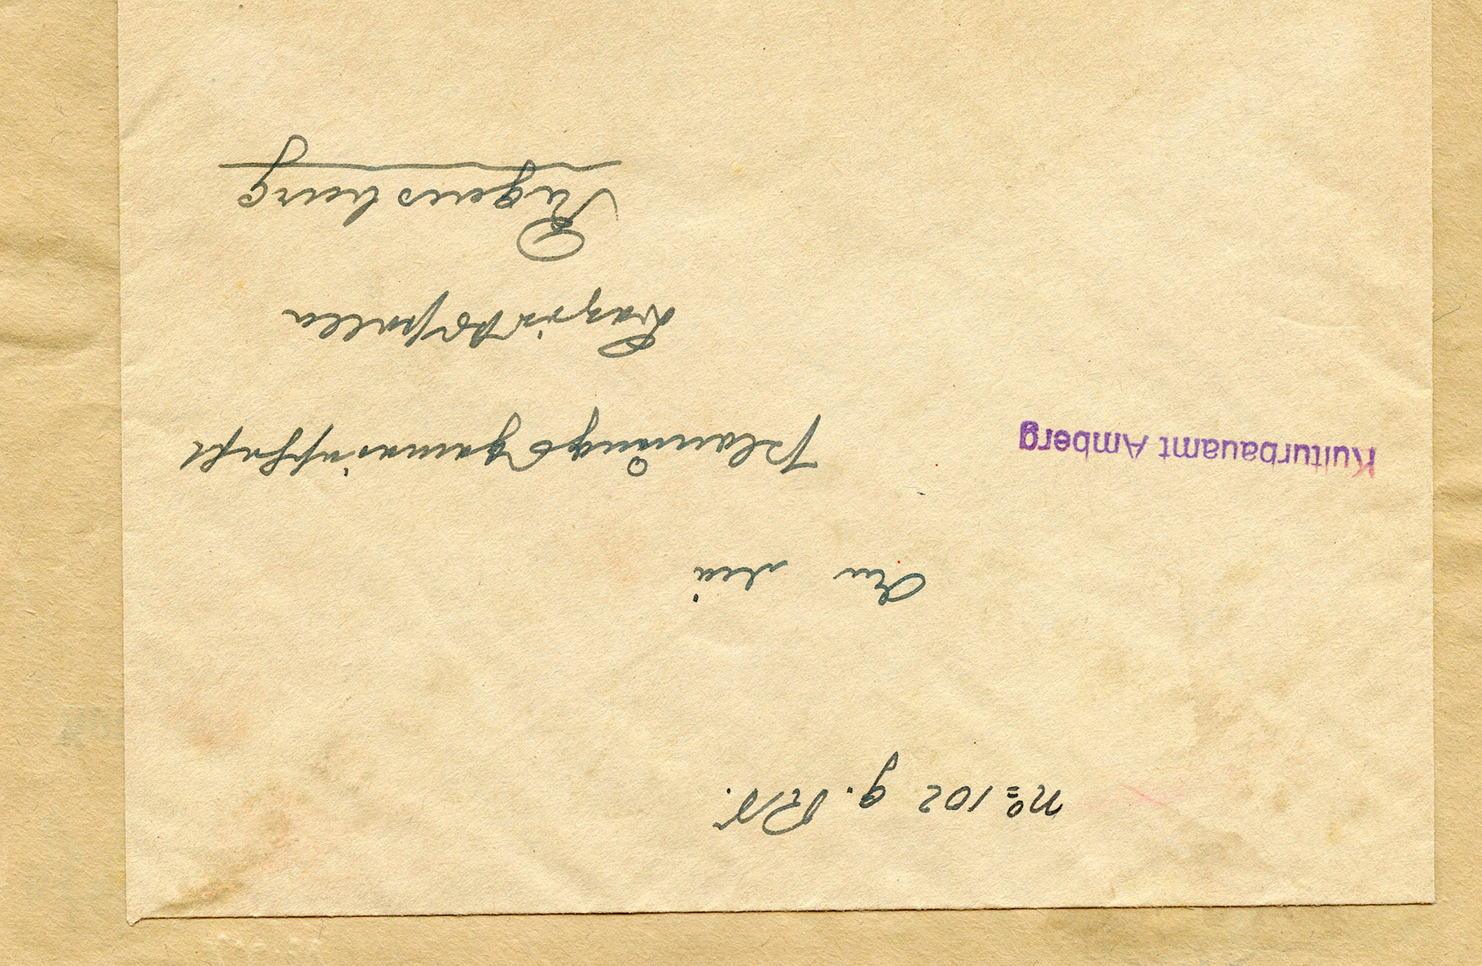 No 102 g. Rs.
An die
Kulturbauamt Amberg
Planungsgemeinschaft
Bezirksstelle
Regensburg